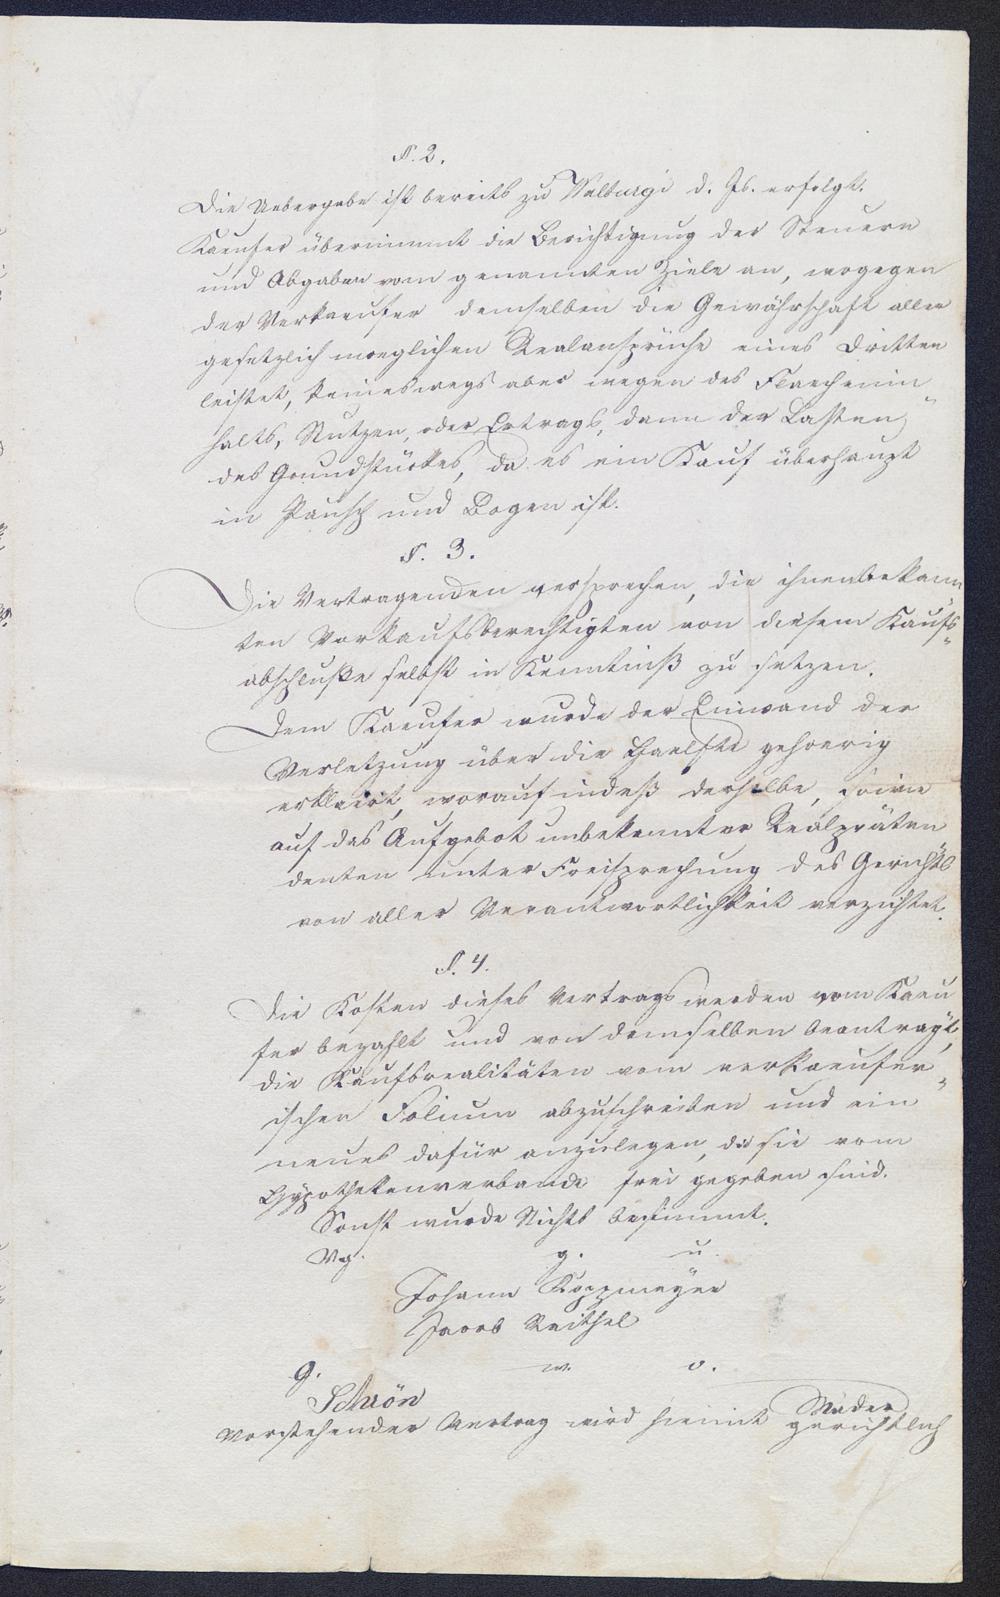 §. 2.
Die Uebergabe ist bereits zu Walburgi d. Js. erfolgt.
Kaeufer übernimmt die Berichtigung der Steuern
und Abgaben vom genannten Ziele an, wogegen
der Verkaeufer demselben die Gewährschaft aller
gesetzlich moeglichen Realansprüche eines Dritten
leistet, keineswegs aber wegen des Flaechenin„
halts, Nutzen, oder Ertrags, dann der Lasten
des Grundstückes, da es ein Kauf überhaupt
in Pausch und Bogen ist.
§. 3.
Die Vertragenden versprechen, die ihnen bekann
ten Vorkaufsberechtigten von diesem Kaufs„
abschluße selbst in Kenntniß zu setzen.
Dem Kaeufer wurde der Einwand der
Verletzung über die Haelfte gehoerig
erklaert, worauf indeß derselbe, sowie
auf das Aufgebot unbekannter Realpräten
denten unter Freisprechung des Gerichts
von aller Verantwortlichkeit verzichtet.
§. 4.
Die Kosten dieses Vertrags werden vom Kaeu
fer bezahlt und von demselben beantragt,
die Kaufsrealitäten vom verkaeufer„
ischen Folium abzuschreiben und ein
neues dafür anzulegen, da sie vom
Hypothekenverbande frei gegeben sind.
Sonst wurde Nichts bestimmt.
V. g. u.
Johann Koppmeyer
Jacob Reithel
g. w. o.
Schrön Mader
Vorstehender Vertrag wird hiemit gerichtlich